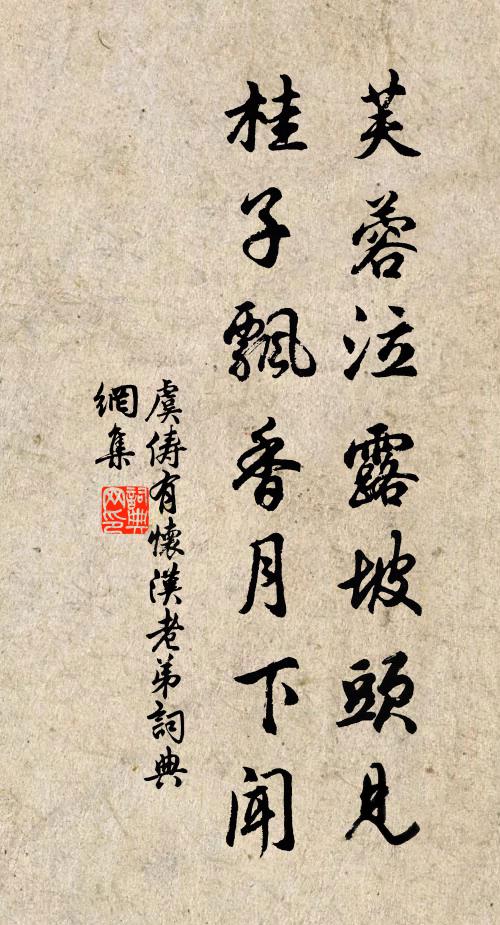 芙蓉泣露坡頭見
桂子飄香月下聞
虞儔有懷漢老弟詞典
網集
詞典
网印